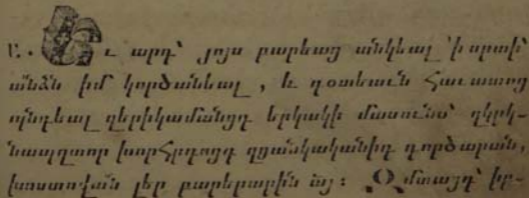 Եւ արդ՝ յոյս բարեաց անկեալ ՚ի սրտի՝
անձն իմ կործանեալ , և զօտեաւն հաւատոց
պնդեալ զերիկամանցդ երկակի մասունս՝ զկրկ-
նապղտոր խորհրդոցդ զցանկականիդ գործարան,
խոստովան լեր բարերարին այ։ Զմտայդ՝ իբ-